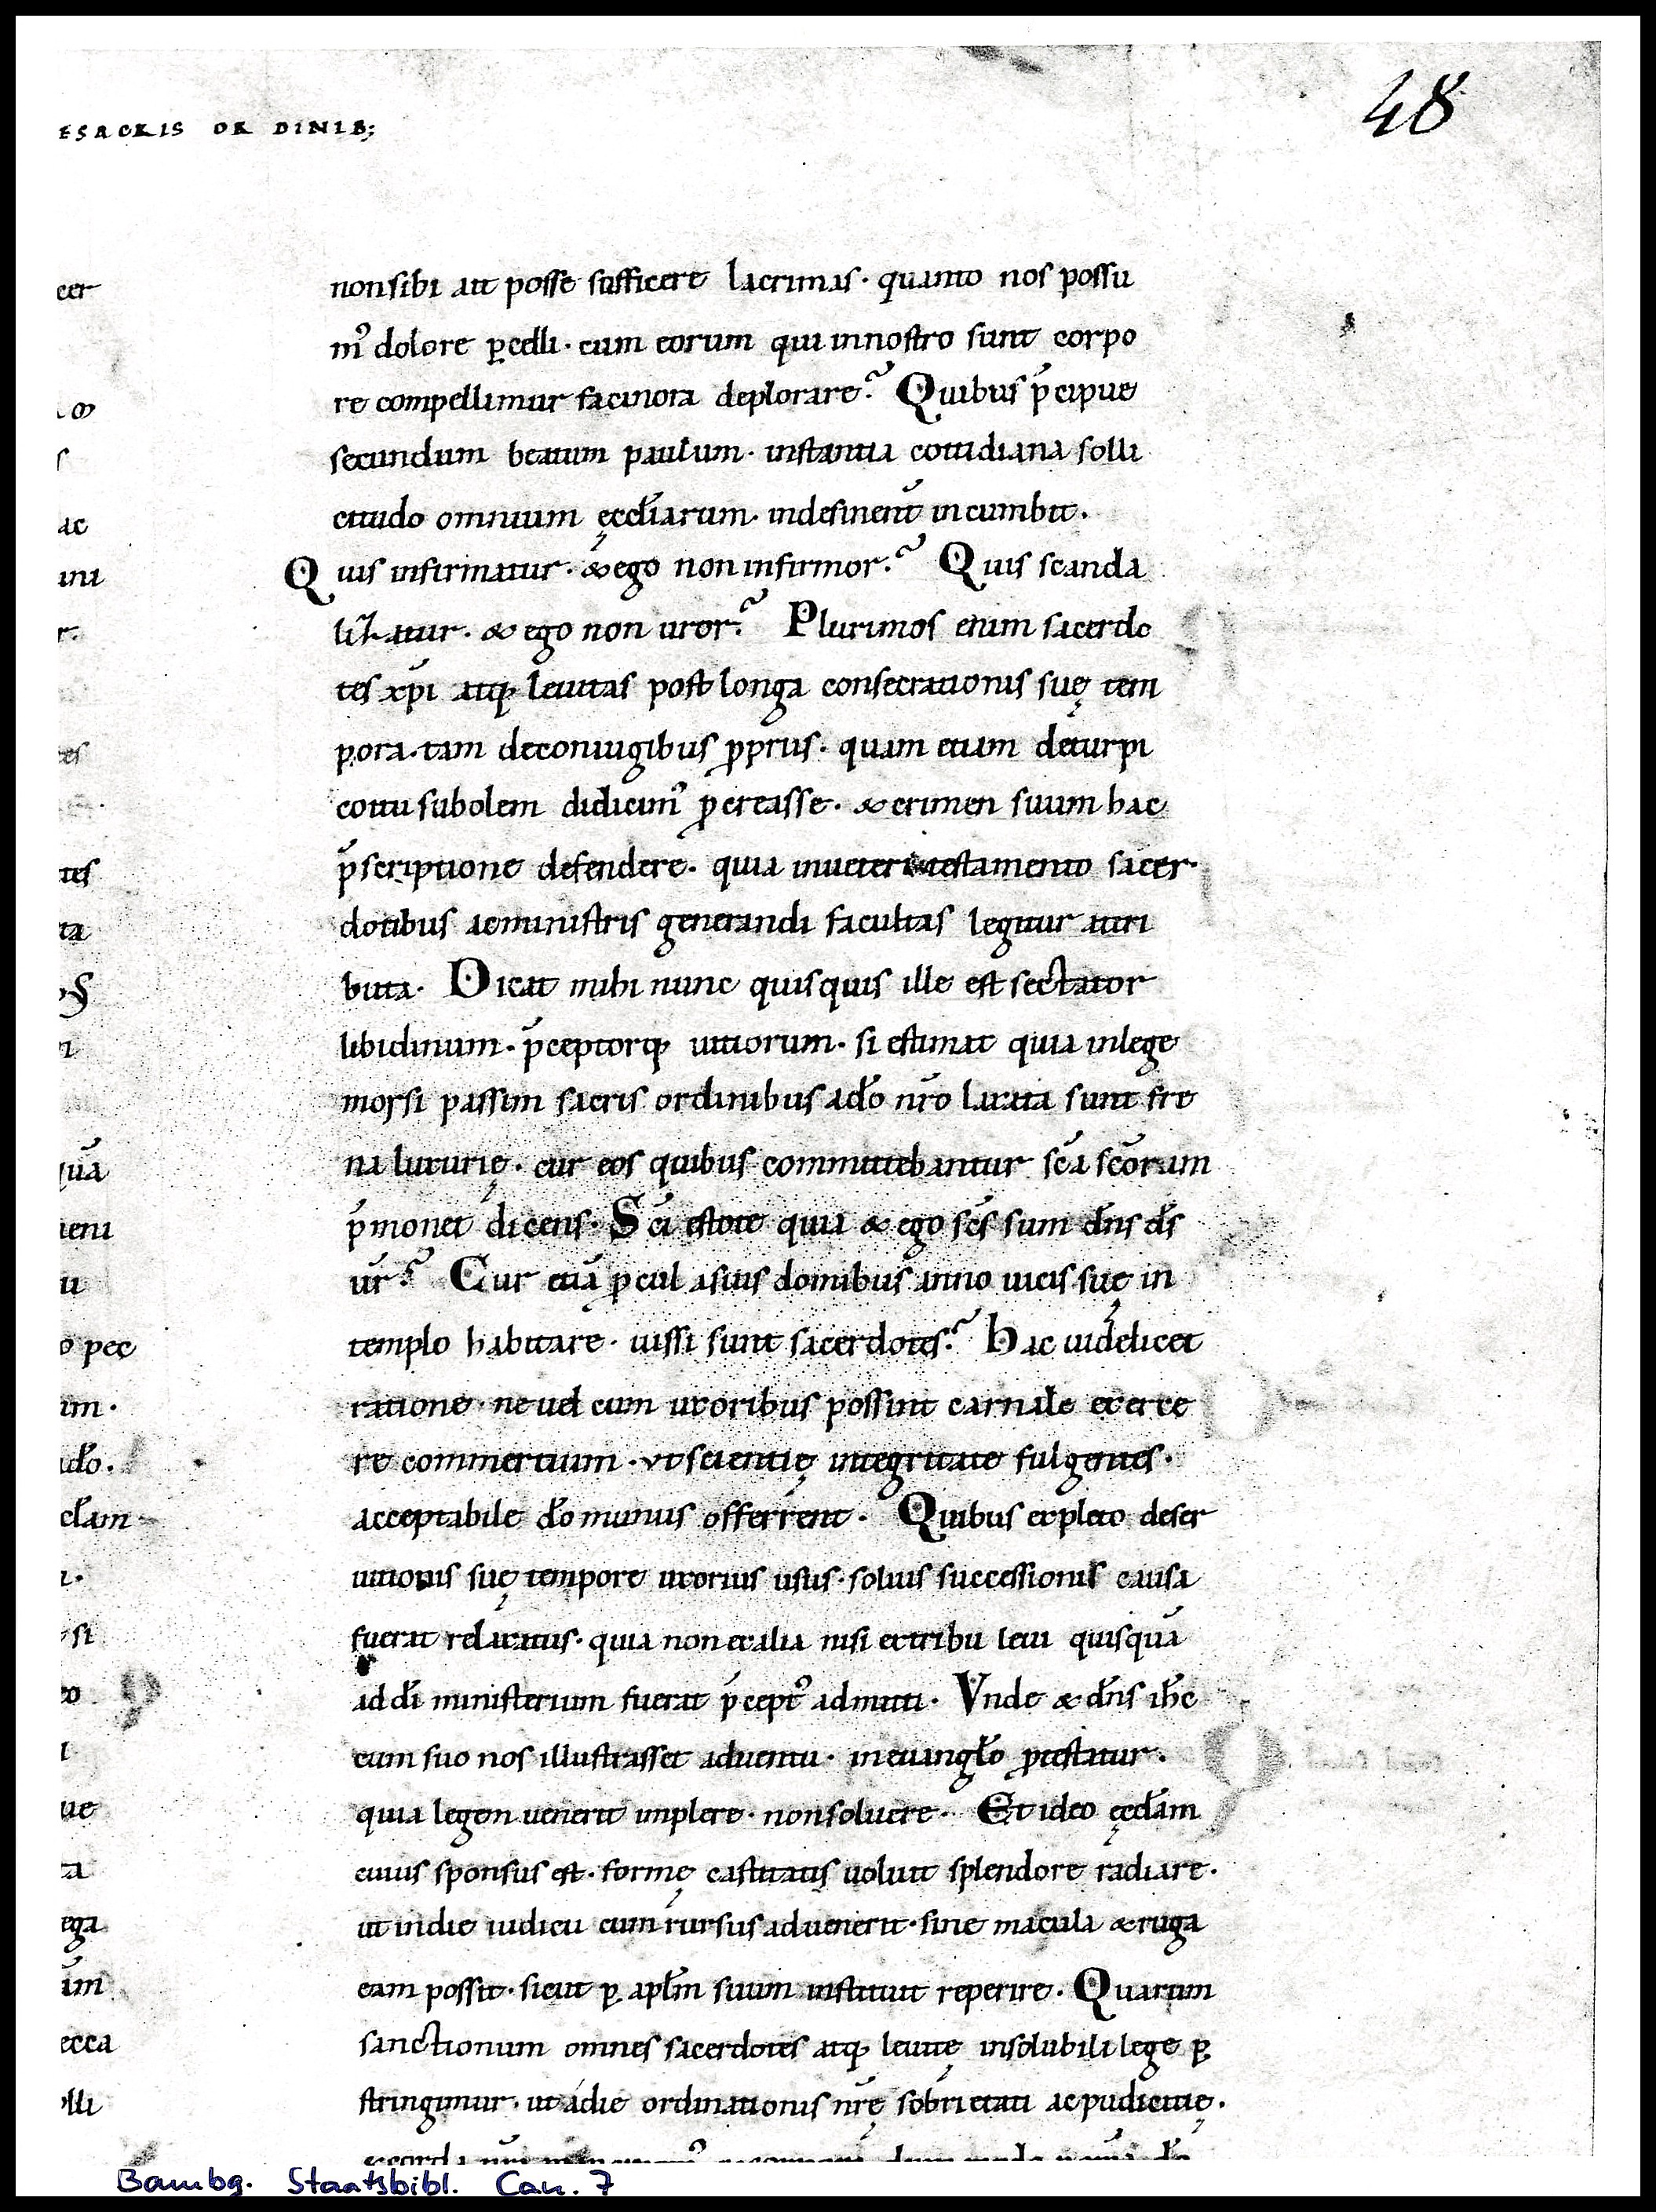 ESACRIS ORDINIB;
48
non sibi ait posse sufficere lacrimas· quanto nos possu
mꝰ dolore ꝑcelli· cum eorum qui in nostro sunt corpo
re compellimur facinora deplorare? Quibus p̄cipue
secundum beatum paulum· instantia cottidiana solli
citudo omnium ęccl̄iarum· indesinent̄ incumbit.
Quis infirmatur· & ego non infirmor? Quis scanda
lizatur· & ego non uror? Plurimos enim sacerdo
tes xp̄i atq; leuitas post longa consecrationis suę tem
pora· tam de coniugibus ꝓprus· quam etiam de turpi
coitu subolem didicimꝰ ꝓcreasse· & crimen suum hac
p̄scriptione defendere· quia in ueteri testamento sacer
dotibus ac ministris generandi facultas legitur attri
buta· Dicat mihi nunc quisquis ille est sectator
libidinum· p̄ceptorq; uitiorum· si estimat quia in lege
moysi passim sacris ordinibus a dō nr̄o laxata sunt fre
na luxurię· cur eos quibus committebantur sc̄a sc̄orum
p̄monet dicens· Sc̄i estote quia & ego sc̄s sum dn̄s ds̄
ur̄? Cur etiā ꝓcul a suis domibus anno uicis suę in
templo habitare· iussi sunt sacerdotes? hac uidelicet
ratione· ne uel cum uxoribus possint carnale exerce
re commertium· ut scientię integritate fulgentes·
acceptabile dō munus offerrent· Quibus expleto deser
uitionis suę tempore uxorius usus· solius successionis causa
fuerat relaxatus· quia non ex alia nisi ex tribu leui quisquā
ad dī ministerium fuerat p̄ceptꝰ admitti· Vnde & dn̄s ih̄c
cum suo nos illustrasset aduentu· in euangl̄o ꝓtestatur·
quia legem uenerit implere· non soluere· Et ideo ęccl̄am
cuius sponsus est· formę castitatis uoluit splendore radiare·
ut in die iudicii cum rursus aduenerit· sine macula & ruga
eam possit· sicut ꝑ apl̄m suum instituit reperire· Quarum
sanctionum omnes sacerdotes atq; leuitę insolubili lege ꝑ
stringimur· ut a die ordinationis nr̄ę sobrietati ac pudicitię·
Bambg. Staatsbibl. Can. 7